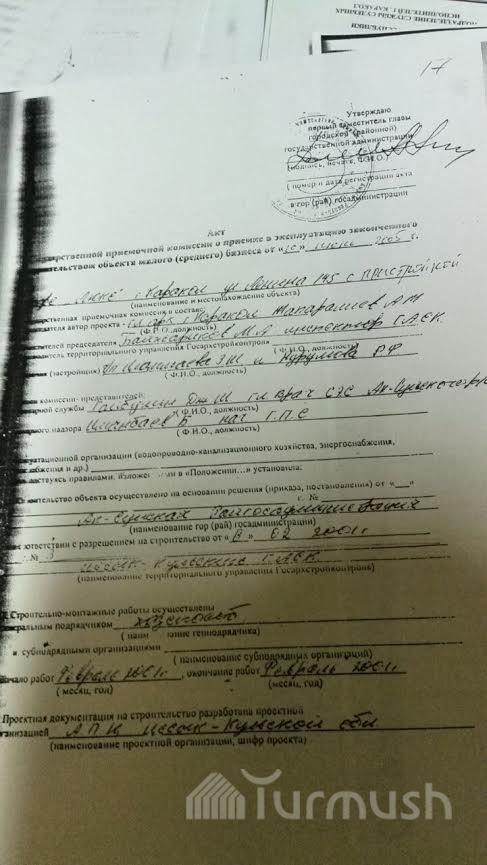 ПОДРАЗДЕЛЕНИЕ СЛУЖБЫ СУДЕБНЫХ
ИСПОЛНИТЕЛЕЙ г. КАРАКОЛ
17
Утверждаю
первый заместитель главы
городской (районной)
государственной администрации
(подпись, печать, Ф.И.О.)
( номер и дата регистрации акта
в гор (рай) госадминистрации
Акт
дарственной приемочной комиссии о приемке в эксплуатацию законченного
тельством объекта малого (среднего) бизнеса от « » 2005 г.
г. Каракол ул Ленина 145 с пристройкой
(наименование и местонахождение объекта)
арственная приемочная комиссия в составе:
едателя автор проекта - гл арх г. Каракол
(Ф.И.О, должность)
ителей председателя М.А инспектор ГАСК
витель территориального управления Госархстройконтроля
(Ф.И.О., должность)
(застройщик) и РФ
( Ф.И.О., должность)
комиссии- представителей:
Дж Ш гл врач СЭС Ак-Суйского
( Ф.И.О., должность)
рного надзора Иманбаев Б нач Г.П.С
( Ф.И.О., должность)
уатационной организации (водопроводно-канализационного хозяйства, энергоснабжения,
бжения и др.)
дствуясь правилами, изложе ми в «Положении…» установила:
ительство объекта осуществлено на основании решения (приказа, постановления) от «__»
г. №
Ак-Суйская Райгосадминистрация
(наименование гор (рай) госадминистрации)
ответствии с разрешением на строительство от « » 02 2001г
№
Иссык-Кульский ГАСК
(наименование территориального управления Госархстройконтроля)
Строительно-монтажные работы осуществлены
еральным подрядчиком хозспособ
( наим ование генподрядчика)
и субподрядными организациями
( наименование субподрядных организаций)
ачало работ Февраль 2001г, окончание работ Февраль 2001г
( месяц, год) (месяц, год)
Проектная документация на строительство разработана проектной
ганизацией А П И Иссык-Кульской обл
(наименование проектной организации, шифр проекта)
Turmush